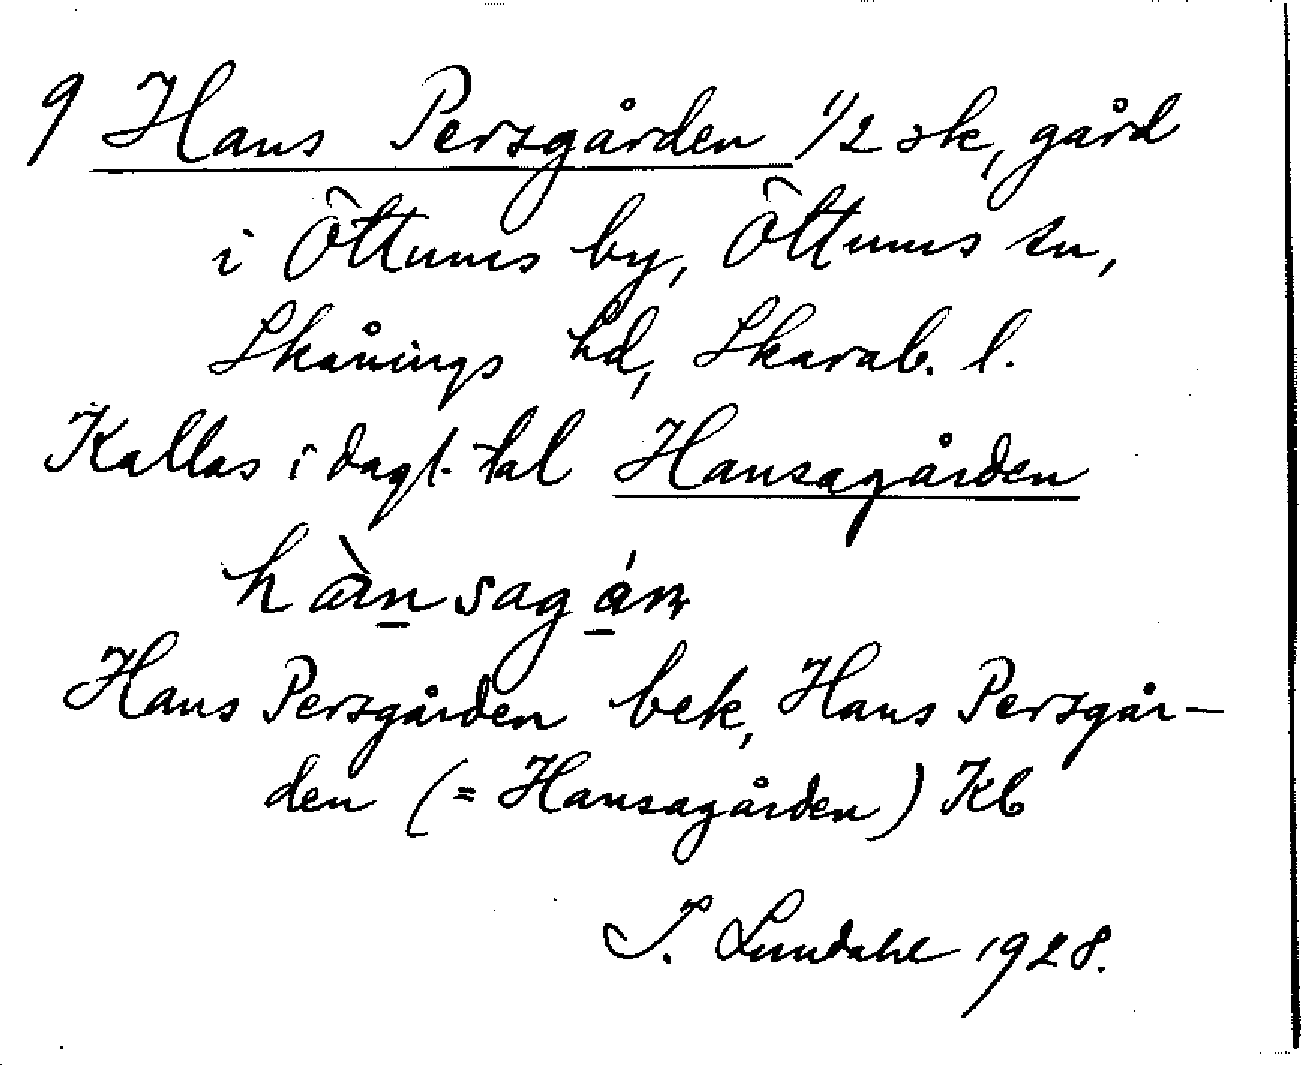 9 Hans Persgården 1/2 sk, gård
i Öttums by, Öttums sn,
Skånings hd, Skarab. l.
Kallas i dagl. tal Hansagården
hànsagán
Hans Persgården bek, Hans Persgår-
den (= Hansagården) Kb
I. Lundahl 1928.